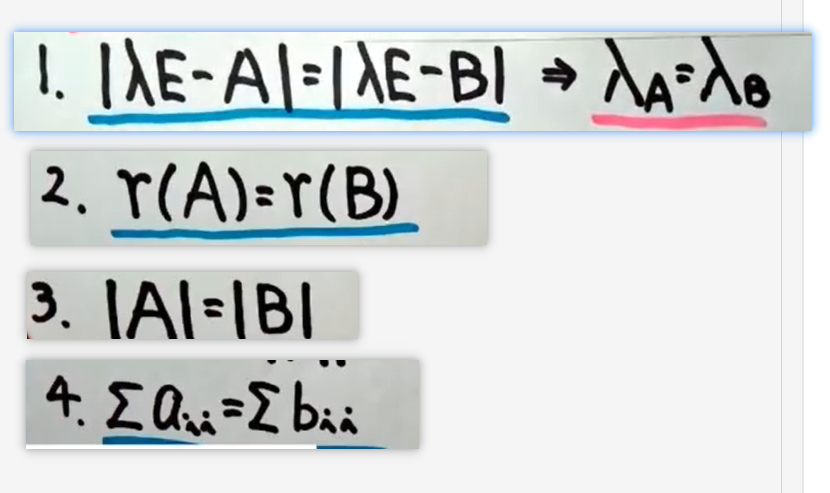 1. |λE-A|=|λE-B| ⇒ λA=λB
2. r(A)=r(B)
3. |A|=|B|
4. Σaii=Σbii